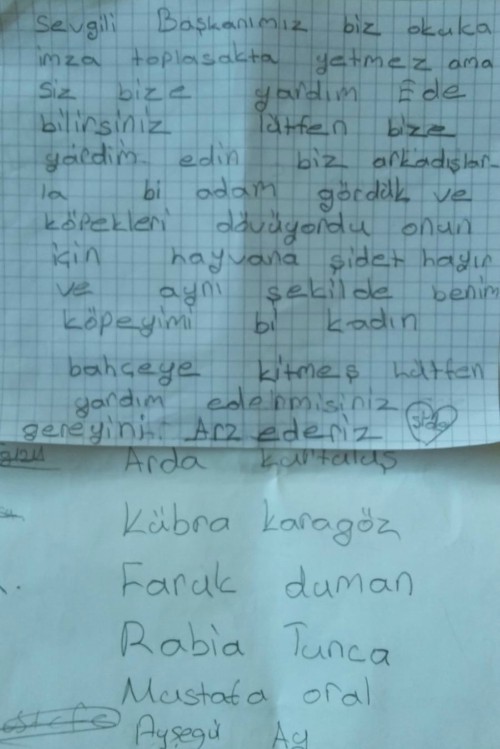 Sevgili Başkanımız biz okuka
imza toplasakta yetmez ama
Siz bize yardım Ede
bilirsiniz lütfen bize
yardim edin biz arkadışlar-
la bi adam gördük ve
köpekleri dövüyordu onun
için hayvana şidet hayır
ve aynı şekilde benim
köpeyimi bi kadın
bahçeye kitmeş lütfen
yardım edermisiniz
gereyini. Arz ederiz
Arda kurtuluş
Kübra karagöz
Faruk duman
Rabia Tunca
Mustafa oral
Ayşegü Ay